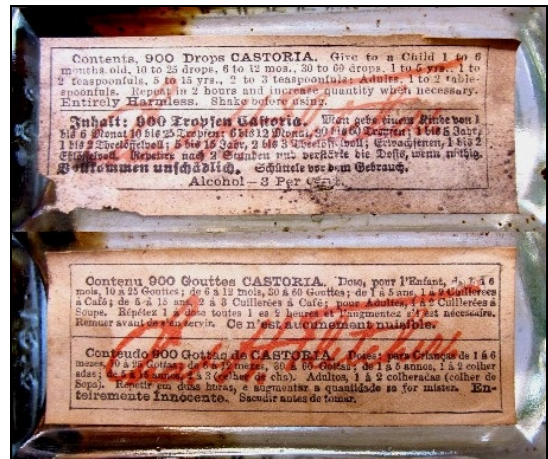 Contents, 900 Drops CASTORIA. Give to a Child 1 to 6
months old, 10 to 25 drops, 6 to 12 mos., 30 to 60 drops, 1 to 5 yrs., 1 to
2 teaspoonfuls, 5 to 15 yrs., 2 to 3 teaspoonfuls; Adults, 1 to 2 table-
spoonfuls. Repeat in 2 hours and increase quantity when necessary.
Entirely Harmless. Shake before using.
Inhalt: 900 Tropfen Castoria. Man gebe einem Kinde von 1
bis 6 Monat 10 bis 25 Tropfen; 6 bis 12 Monat, 30 bis 60 Tropfen; 1 bis 5 Jahr,
1 bis 2 Theelöffelvoll; 5 bis 15 Jahr, 2 bis 3 Theelöffelvoll; Erwachsenen, 1 bis 2
Eßlöffelvoll. Repetire nach 2 Stunden und verstärke die Dosis, wenn nöthig.
Vollkommen unschädlich. Schüttele vor dem Gebrauch.
Alcohol—3 Per Cent.
Contenu 900 Gouttes CASTORIA. Dose, pour l'Enfant, de 1 à 6
mois, 10 à 25 Gouttes; de 6 à 12 mois, 30 à 60 Gouttes; de 1 à 5 ans, 1 à 2 Cuillerées
à Café; de 5 à 15 ans, 2 à 3 Cuillerées à Café; pour Adultes, 1 à 2 Cuillerées à
Soupe. Répétez la dose toutes les 2 heures et l'augmentez s'il est nécessaire.
Remuer avant de s'en servir. Ce n'est aucunement nuisible.
Conteudo 900 Gottas de CASTORIA. Doses: para Crianças de 1 á 6
mezes, 10 á 25 Gottas; de 6 á 12 mezes, 30 á 60 Gottas; de 1 á 5 annos, 1 á 2 colher
adas; de 5 á 15 annos, 2 á 3 (colher de cha). Adultos, 1 á 2 colheradas (colher de
Sopa). Repetir em duas huras, e augmentar a quantidade se for mister. En-
teiremente Innocente. Sacudir antes de tomar.